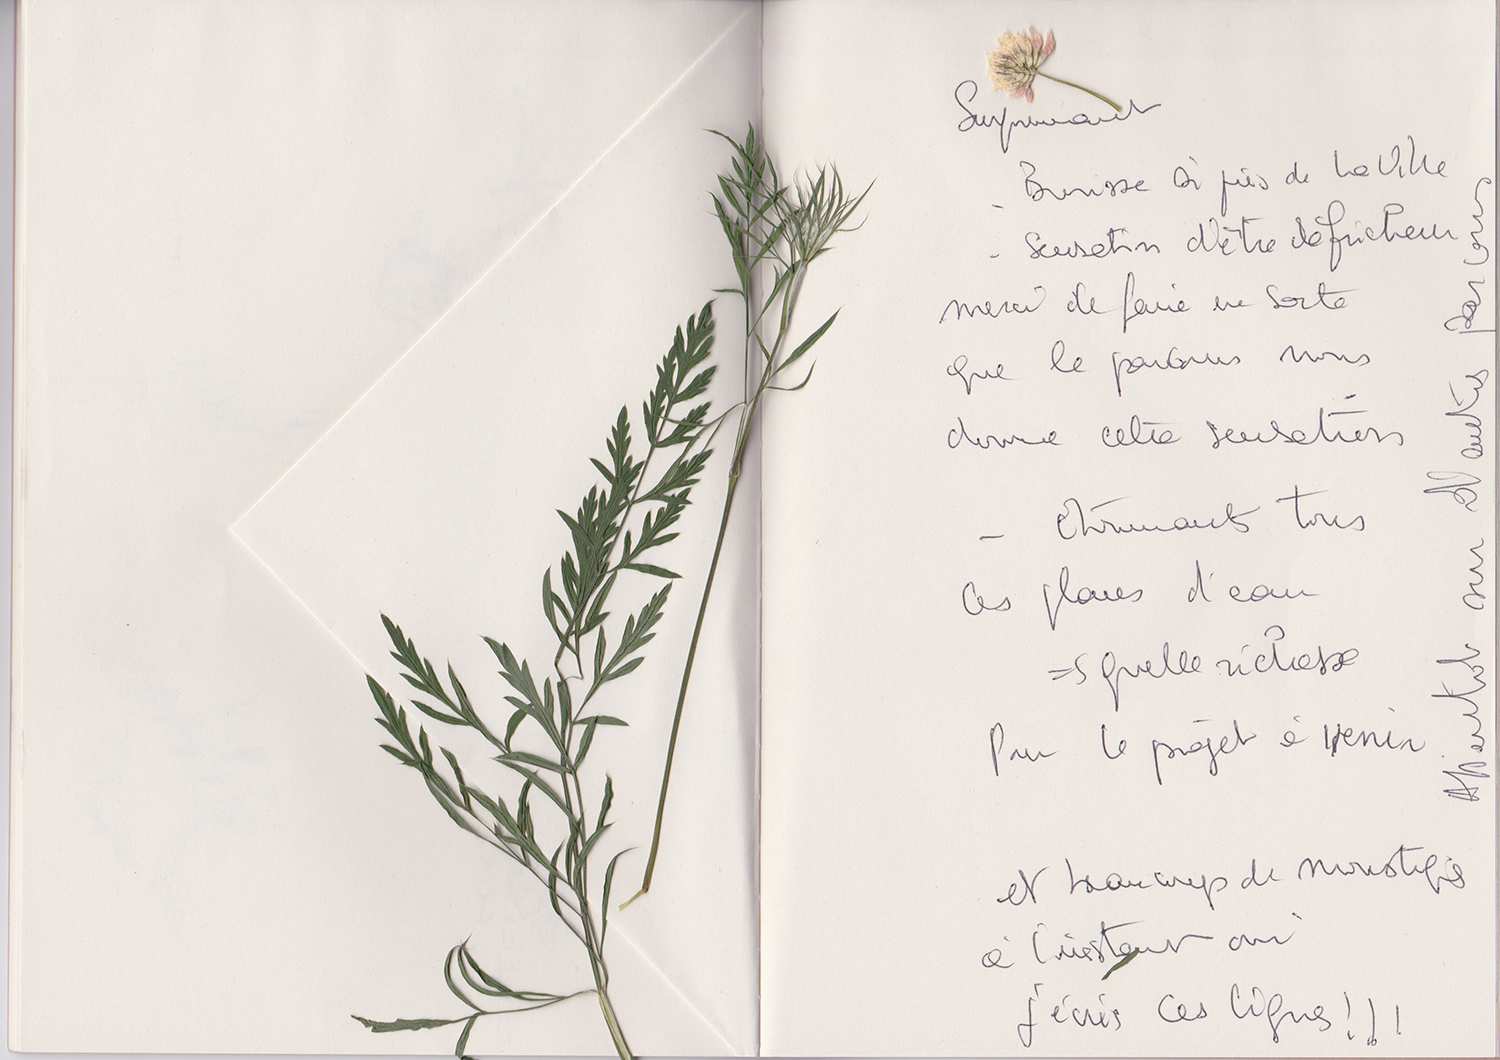 Surprenant
- Brousse si près de la Ville
- sensation d'être défricheur
merci de faire en sorte
que le parcours nous
donne cette sensation
- étonnants tous
ces plans d'eau
=> quelle richesse
Pour le projet à venir
et beaucoup de moustiques
à l'instant où
j'écris ces lignes!!!
sur d'autres parcours